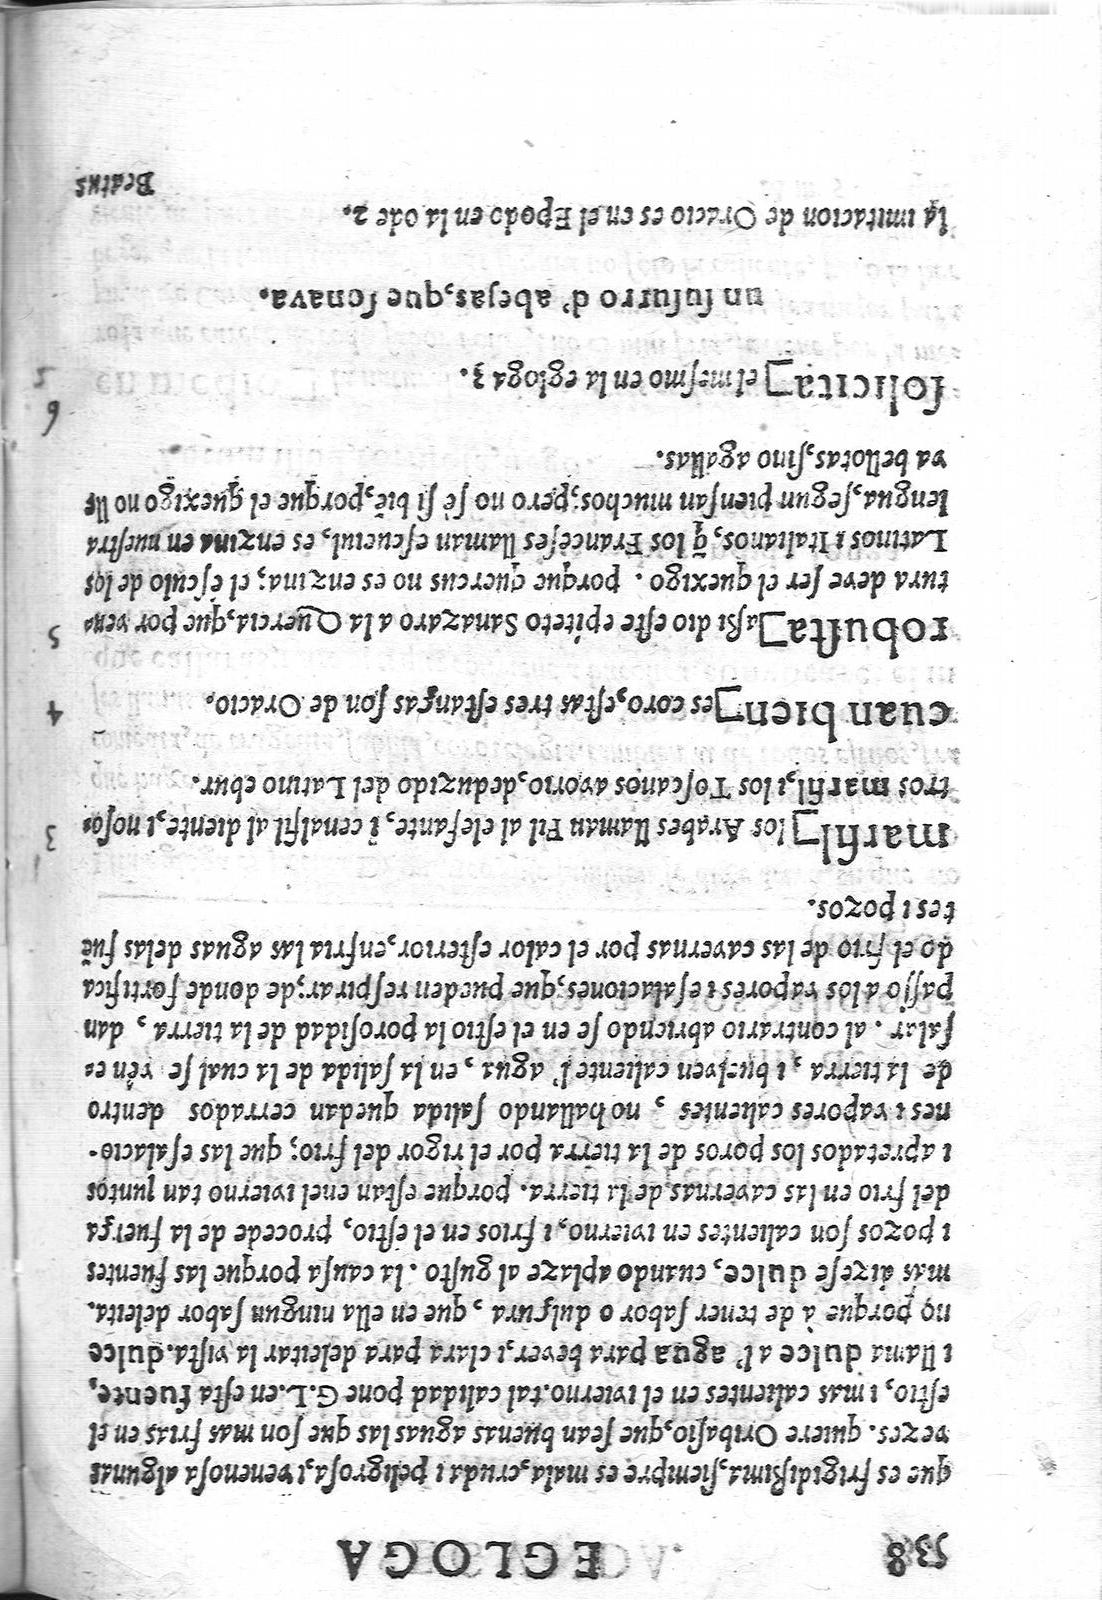 538 EGLOGA
que es frigidißima, siempre es mala, cruda i peligrosa, i venenosa algunas
vezes. quiere Oribasio, que sean buenas aguas las que son mas frias en el
estio, i mas calientes en el ivierno. tal calidad pone G. L. en esta fuente,
i llama dulce a l' agua para bever, i clara para deleitar la vista. dulce
no porque à de tener sabor o dulçura, que en ella ningun sabor deleita.
mas dizese dulce, cuando aplaze al gusto. la causa porque las fuentes
i pozos son calientes en ivierno, i frios en el estio, procede de la fuerça
del frio en las cavernas de la tierra. porque estan en el ivierno tan juntos
i apretados los poros de la tierra por el rigor del frio; que las esalacio-
nes i vapores calientes, no hallando salida quedan cerrados dentro
de la tierra, i buelven caliente l' agua, en la salida de la cual se vèn es-
salar. al contrario abriendo se en el estio la porosidad de la tierra, dan
passo a los vapores i esalaciones, que pueden respirar; de donde fortifica
do el frio de las cavernas por el calor esterior, enfria las aguas delas fuẽ
tes i pozos.
marfil] los Arabes llaman Fil al elefante, i cenalfil al diente, i noso- 3
tros marfil, i los Toscanos avorio, deduzido del Latino ebur.
cuan bien] es coro, estas tres estanças son de Oracio. 4
robusta] aßi dio este epiteto Sanazaro a la Quercia, que por vena 5
tura deve ser el quexigo. porque quercus no es enzina; el esculo de los
Latinos i Italianos, q̃ los Franceses llaman esceucul, es enzina en nuestra
lengua, segun piensan muchos; pero no sè si biẽ, porque el quexigo no lle
va bellotas, sino agallas.
solicita] el mesmo en la egloga 3. 6
un susurro d' abejas, que sonava.
la imitacion de Oracio es en el Epodo en la ode 2.
Beatus